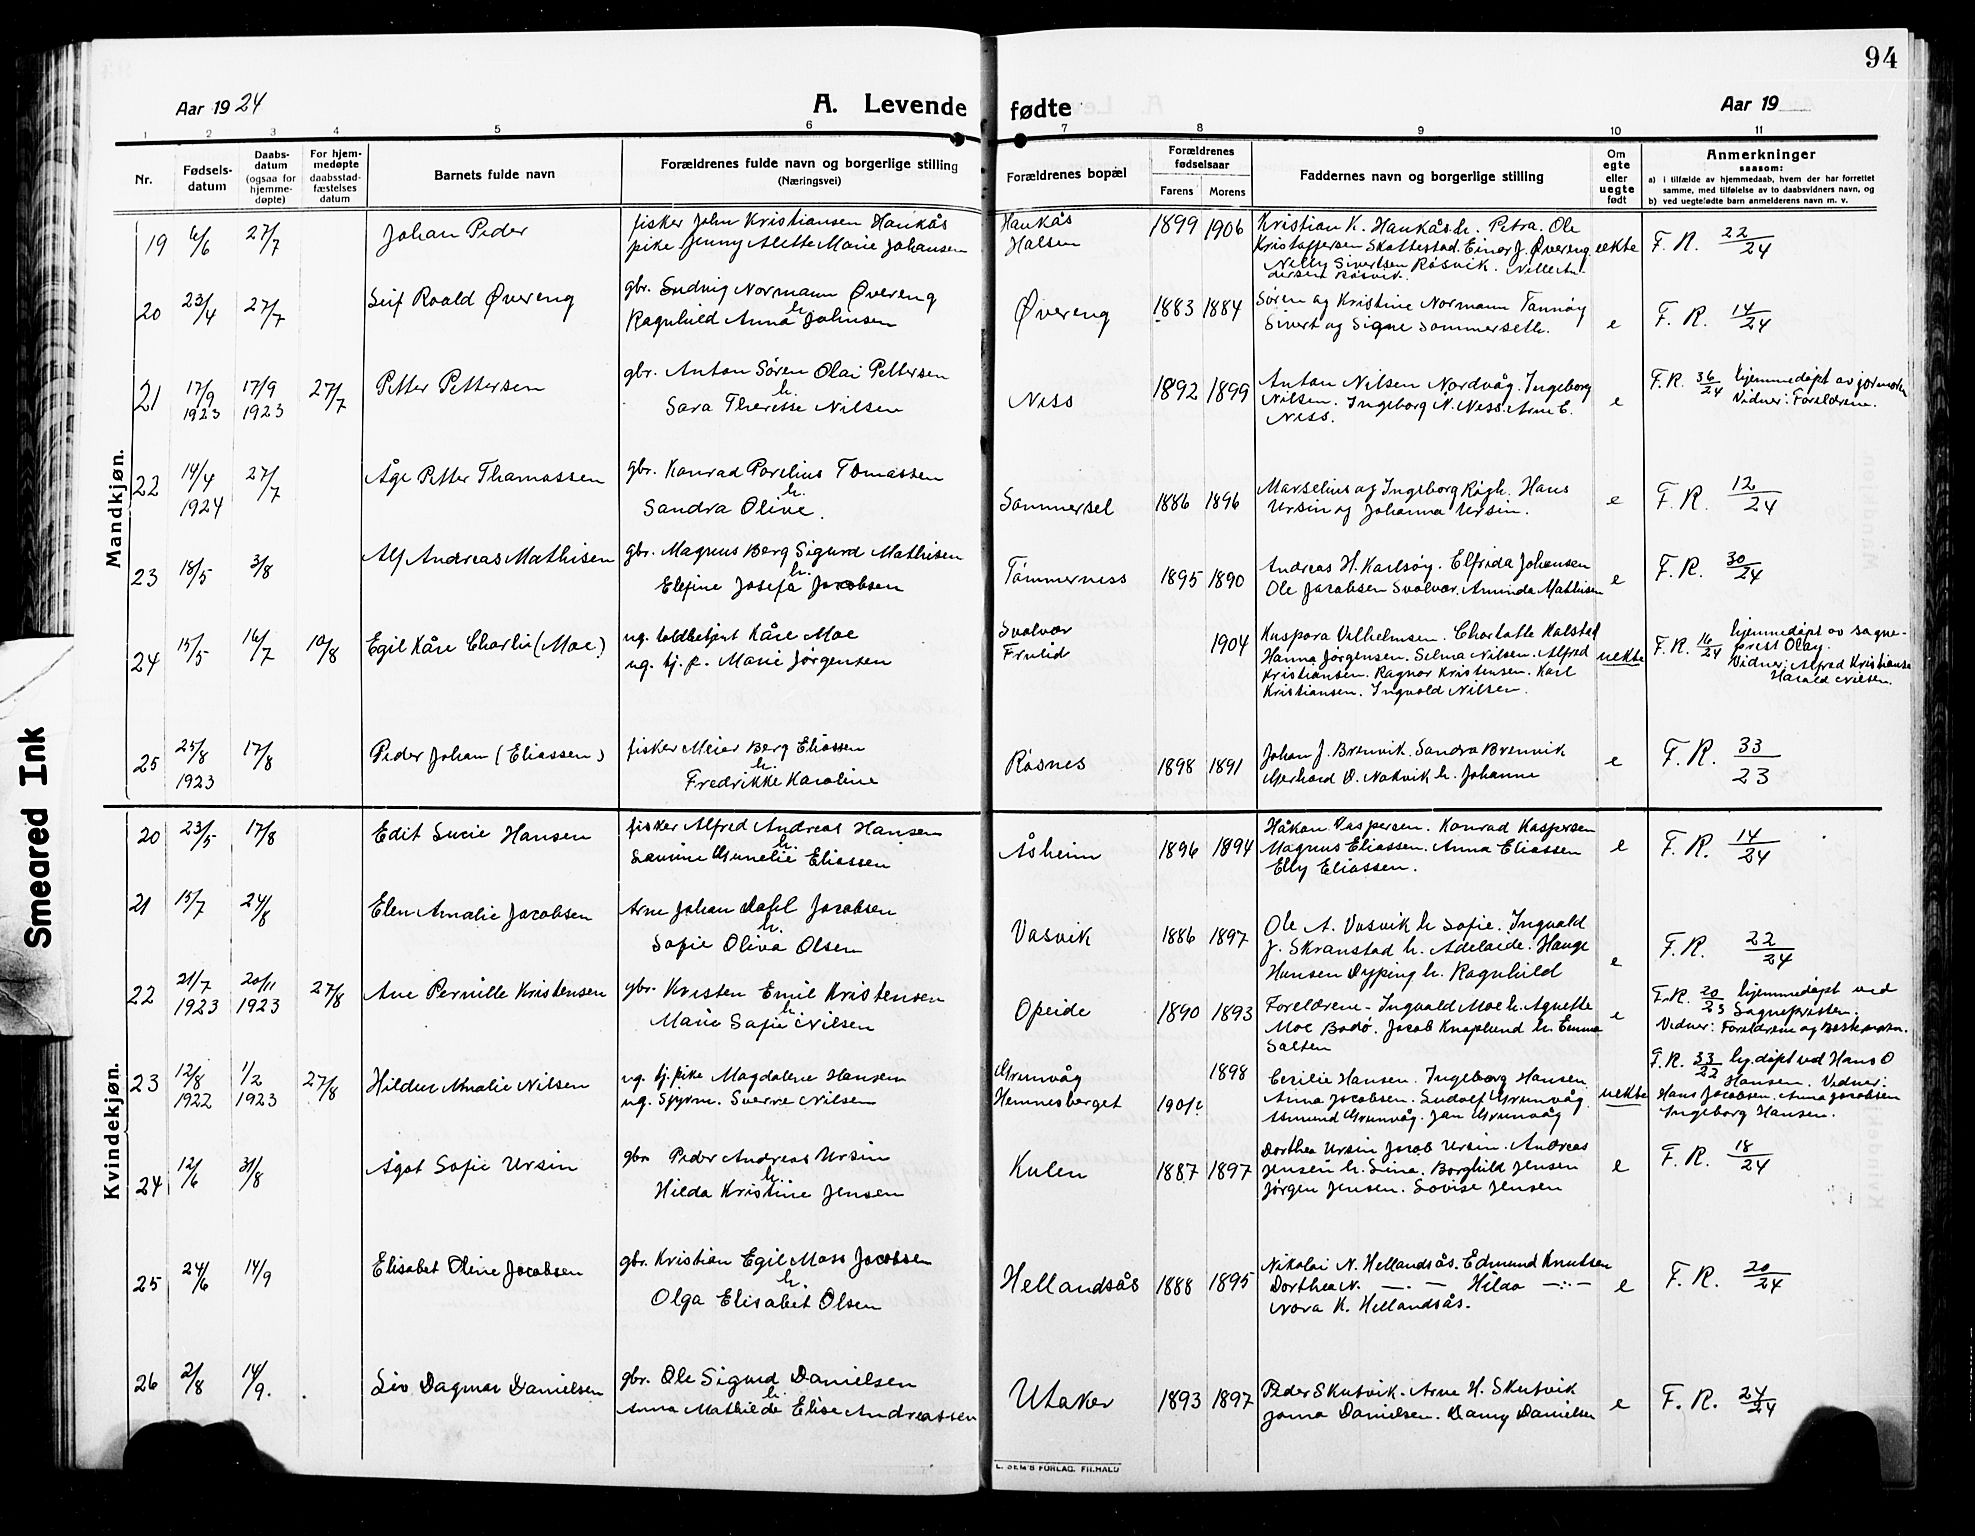 94
Aar 1924
A. Levende fødte
Aar 19
1 2 3 4 5 6 7 8 9 10 11
Nr.
Fødsels-
datum
Daabs-
datum
(ogsaa for
hjemme-
døpte)
For hjem-
medøpte
daabsstad-
fæstelses
datum
Barnets fulde navn
Forældrenes fulde navn og borgerlige stilling
(Næringsvei)
Forældrenes bopæl
Forældrenes
fødselsaar
Farens Morens
Faddernes navn og borgerlige stilling
Om
egte
eller
uegte
født
Anmerkninger
saasom:
a) i tilfælde av hjemmedaab, hvem der har forrettet
samme, med tilføielse av to daabsvidners navn, og
b) ved uegtefødte barn anmelderens navn m. v.
Mandkjøn.
19 6/6 27/7 Johan Peder
fisker John Kristiansen Haukås
pike Jenny Alette Marie Johansen
Haukås
Halsen
1899 1906
Kristian K. Haukås h. Petra. Ole
Kristoffersen Skottestad. Einar J. Øvereng
Nelly Sivertsen Råsvik.
uekte F. R. 22/24
20 23/4 27/7 Leif Roald Øvereng
gbr. Ludvig Normann Øvereng
h.
Ragnhild Anna Johnsen
Øvereng 1883 1884
Søren og Kristine Normann Tannøy
Sivert og Signe Sommerseth.
e F. R. 14/24
21 17/9 1923 17/9 1923 27/7 Petter Pettersen
gbr. Anton Søren Olai Pettersen
h.
Sara Therese Nilsen
Ness 1892 1899
Anton Nilsen Nordvåg. Ingeborg
Nilsen. Ingeborg N. Ness. Arne E.
Ness.
e F. R. 36/24 hjemmedøpt av jormoder
Vidner: Foreldrene.
22 14/4 1924 27/7 Åge Petter Thomassen
gbr. Konrad Porelius Tomassen
h.
Sandra Olive.
Sommersel 1886 1896
Marselius og Ingeborg Røgh. Hans
Ursin og Johanna Ursin.
e F. R. 12/24
23 18/5 3/8 Alf Andreas Mathisen
gbr. Magnus Berg Sigurd Mathisen
h.
Elefine Josefa Jacobsen
Tømmerness 1895 1890
Andreas H. Karlsøy. Elfrida Johansen
Ole Jacobsen Svolvær. Aminda Mathisen
e F. R. 30/24
24 15/5 16/7 10/8 Egil Kåre Charlie (Moe)
ug. toldbetjent Kåre Moe
ug. tj. p. Marie Jørgensen
Svolvær
Frulid
1904
Kaspara Vilhelmsen. Charlotte Kalstad
Hanna Jørgensen. Selma Nilsen. Alfred
Kristiansen. Ragnar Kristensen. Karl
Kristiansen. Ingvald Nilsen.
uekte F. R. 16/24 hjemmedøpt av sogne-
prest Olay.
Vidner: Alfred Kristianse
Harald Nilsen.
25 25/8 1923 17/8 Peder Johan (Eliassen)
fisker Meier Berg Eliassen
h.
Fredrikke Karoline
Råsnes 1898 1891
Johan J. Brenvik. Sandra Brenvik
Gerhard O. Nakvik h. Johanne
e F. R. 33/23
Kvindekjøn.
20 23/5 17/8 Edit Lucie Hansen
fisker Alfred Andreas Hansen
h.
Eliassen
Åsheim 1896 1894
Håkon Kaspersen. Konrad Kaspersen
Magnus Eliassen. Anna Eliassen
Elly Eliassen.
e F. R. 14/24
21 15/7 24/8 Elen Amalie Jacobsen
Arne Johan Dahl Jacobsen
h.
Sofie Oliva Olsen
Vasvik 1886 1897
Ole A. Vasvik h Sofie. Ingvald
J. Skranstad h. Adelaide. Hauge
Hansen Dyping h. Ragnhild
e F. R. 22/24
22 21/7 1923 20/11 1923 27/8 Ane Pernille Kristensen
gbr. Kristen Emil Kristensen
h.
Marie Sofie Nilsen
Opeide 1890 1893
Foreldrene - Ingvald Moe h. Agnette
Moe Bodø. Jacob Knaplund h. Emma
Salten
e F. R. 20/23 hjemmedøpt ved
Sognepresten.
Vidner: Foreldrene og Bestemoren.
23 12/8 1922 1/2 1923 27/8 Hildur Amalie Nilsen
ug. tj. pike Magdalene Hansen
ug. Sverre Nilsen
Grunvåg
Hemnesberget
1898
Cecilie Hansen. Ingeborg Hansen
Anna Jacobsen. Ludolf Grunvåg
Åsmund Grunvåg. Jan Grunvåg
uekte F. R. 33/22 hj. døpt ved Hans O
Hansen. Vidner:
Hans Jacobsen. Anna Jacobsen
Ingeborg Hansen.
24 12/6 31/8 Ågot Sofie Ursin
gbr. Peder Andreas Ursin
h.
Hilda Kristine Jensen
Kulen 1887 1897
Dorthea Ursin Jacob Ursin. Andreas
Jensen h. Lina. Borghild Jensen
Jørgen Jensen. Lovise Jensen
e F. R. 18/24
25 24/6 14/9 Elisabet Oline Jacobsen
gbr. Kristian Egil Moss Jacobsen
h.
Olga Elisabet Olsen
Hellandsås 1888 1895
Nikolai N. Hellandsås. Edmund Knutsen
Dorthea N. —.— Hilda —:—
Nora K. Hellandsås.
e F. R. 20/24
26 2/8 14/9. Liv Dagmar Danielsen
gbr. Ole Sigurd Danielsen
h.
Anna Mathilde Elise Andreassen
Utaker 1893 1897
Peder Skutvik. Arne H. Skutvik
Joma Danielsen. Danny Danielsen
e F. R. 24/24
E. SEM'S FORLAG, FR.HALD
Smeared Ink